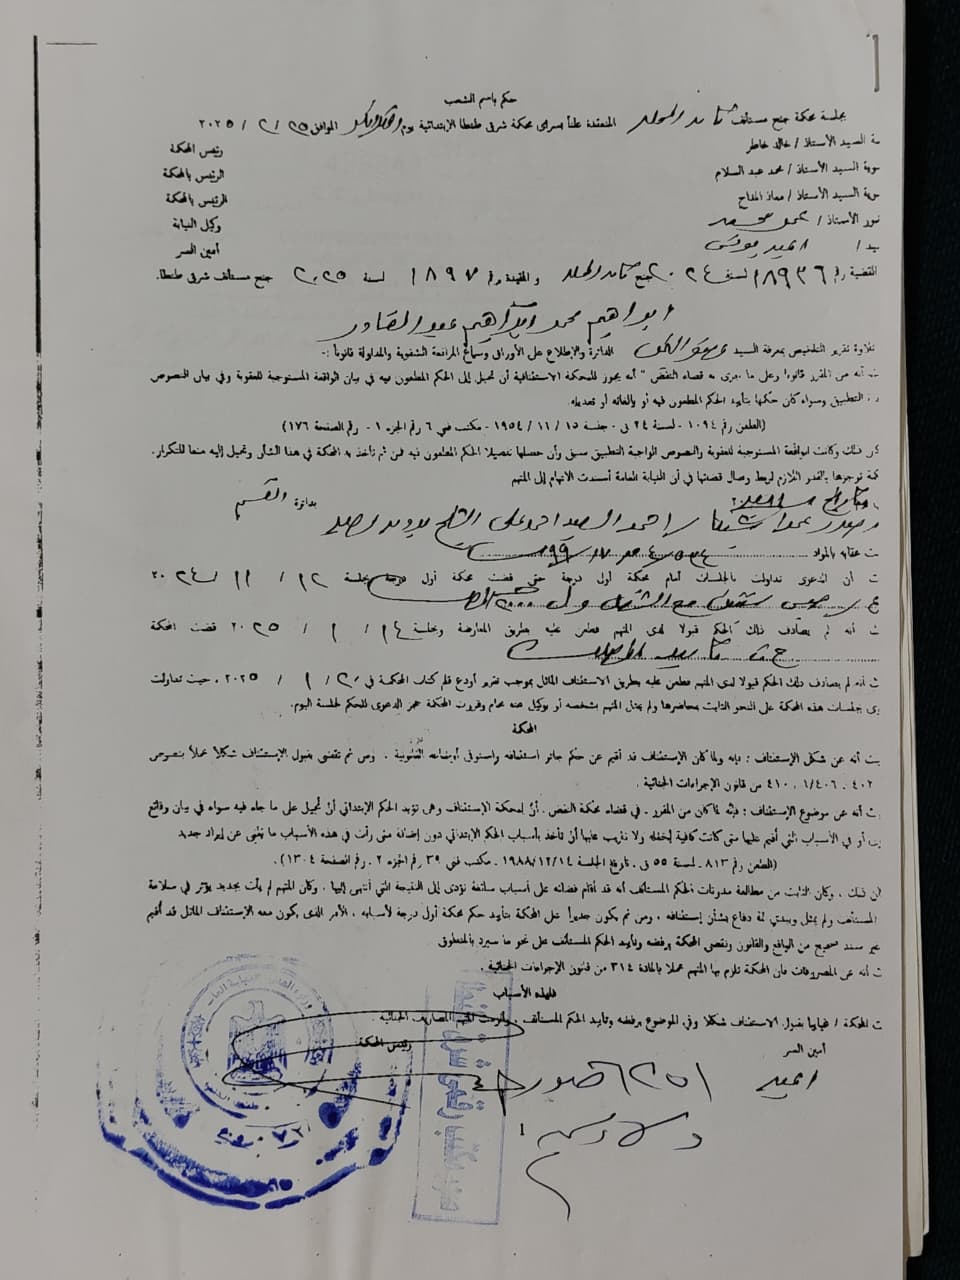 حكم باسم الشعب
بجلسة محكمة جنح مستأنف المنعقدة علناً بسراى محكمة شرق طنطا الإبتدائية يوم الموافق ٢٥ / ٢ / ٢٠٢٥
سة السيد الأستاذ / خالد خاطر رئيس المحكمة
سوية السيد الأستاذ / محمد عبد السلام الرئيس بالمحكمة
سوية السيد الأستاذ / معاذ المداح الرئيس بالمحكمة
ضور الأستاذ / محمد وكيل النيابة
أمين السر
القضية رقم ١٨٩٣٦ لسنة ٢٠٢٤ جنح والمقيدة برقم ١٨٩٧ لسنة ٢٠٢٥ جنح مستأنف شرق طنطا.
ابراهيم محمد ابراهيم عبد القادر
تلاوة تقرير التلخيص بمعرفة السيد الدائرة والإطلاع على الأوراق وسماع المرافعة الشفوية والمداولة قانوناً :-
أنه من المقرر قانوناً وعلى ما جرى به قضاء النقض " أنه يجوز للمحكمة الاستئنافية أن تحيل إلى الحكم المطعون فيه في بيان الواقعة المستوجبة للعقوبة وفي بيان النصوص
التطبيق وسواء كان حكمها بتأييد الحكم المطعون فيه أو بإلغائه أو تعديله.
(الطعن رقم ١٠٩٤ - لسنة ٢٤ ق - جلسة ١٥ / ١١ / ١٩٥٤ - مكتب فني ٦ رقم الجزء ١ - رقم الصفحة ١٧٦)
ذلك وكانت الواقعة المستوجبة للعقوبة والنصوص الواجبة التطبيق سبق وأن حصلها تفصيلا الحكم المطعون فيه فمن ثم تأخذ به المحكمة في هذا الشأن وتحيل إليه منعا للتكرار.
توجزها بالقدر اللازم لربط وصال قضائها في أن النيابة العامة أسندت الاتهام إلى المتهم
بدائرة القسم
ت عقابه بالمواد
ث أن الدعوى تداولت بالجلسات أمام محكمة أول درجة حتى قضت محكمة أول درجة بجلسة ١٢ / ١١ / ٢٠٢٤
ث أنه لم يصادف ذلك الحكم قبولا لدى المتهم فطعن عليه بطريق المعارضة وبجلسة ١٤ / ١ / ٢٠٢٥ قضت المحكمة
ث أنه لم يصادف ذلك الحكم قبولا لدى المتهم فطعن عليه بطريق الاستئناف الماثل بموجب تقرير أودع قلم كتاب المحكمة في ٢٠ / ١ / ٢٠٢٥ ، حيث تداولت
وى بجلسات هذه المحكمة على النحو الثابت بمحاضرها ولم يمثل المتهم بشخصه أو بوكيل عنه محام وقررت المحكمة حجز الدعوى للحكم لجلسة اليوم.
المحكمة
يث أنه عن شكل الإستئناف : فإنه ولما كان الإستئناف قد أقيم عن حكم جائز استئنافه واستوفى أوضاعه القانونية . ومن ثم تقضى بقبول الإستئناف شكلاً عملاً بنصوص
٤٠٢ ، ١/٤٠٦ ، ٤١٠ من قانون الإجراءات الجنائية .
ث أنه عن موضوع الإستئناف : فإنه لما كان من المقرر . في قضاء محكمة النقض . أن لمحكمة الإستئناف وهى تؤيد الحكم الإبتدائى أن تحيل على ما جاء فيه سواء في بيان وقائع
أو في الأسباب التي أقيم عليها متى كانت كافية لحمله ولا تثريب عليها أن تأخذ بأسباب الحكم الإبتدائى دون إضافة متى رأت في هذه الأسباب ما يغنى عن إيراد جديد
(الطعن رقم ٨١٣ ـ لسنة ٥٥ ق . تاريخ الجلسة ١٩٨٨/١٢/١٤ . مكتب فني ٣٩ رقم الجزء ٢ . رقم الصفحة ١٣٠٤).
ذلك ، وكان الثابت من مطالعة مدونات الحكم المستأنف أنه قد أقام قضائه على أسباب سائغة تؤدى إلى النتيجة التي أنتهى إليها ، وكان المتهم لم يأت بجديد يؤثر في سلامة
المستأنف ولم يمثل ويبدي ثمة دفاع بشأن إستئنافه ، ومن ثم يكون جديراً على المحكمة بتأييد حكم محكمة أول درجة لأسبابه ، الأمر الذى يكون معه الإستئناف الماثل قد أقيم
غير سند صحيح من الواقع والقانون وتقضى المحكمة برفضه وتأييد الحكم المستأنف على نحو ما سيرد بالمنطوق
ث أنه عن المصروفات فأن المحكمة تلزم بها المتهم عملا بالمادة ٣١٤ من قانون الإجراءات الجنائية .
فلهذه الأسباب
ت المحكمة / غيابيا بقبول الاستئناف شكلا وفي الموضوع برفضه وتأييد الحكم المستأنف ، وألزمت المتهم المصاريف الجنائية .
أمين السر رئيس المحكمة